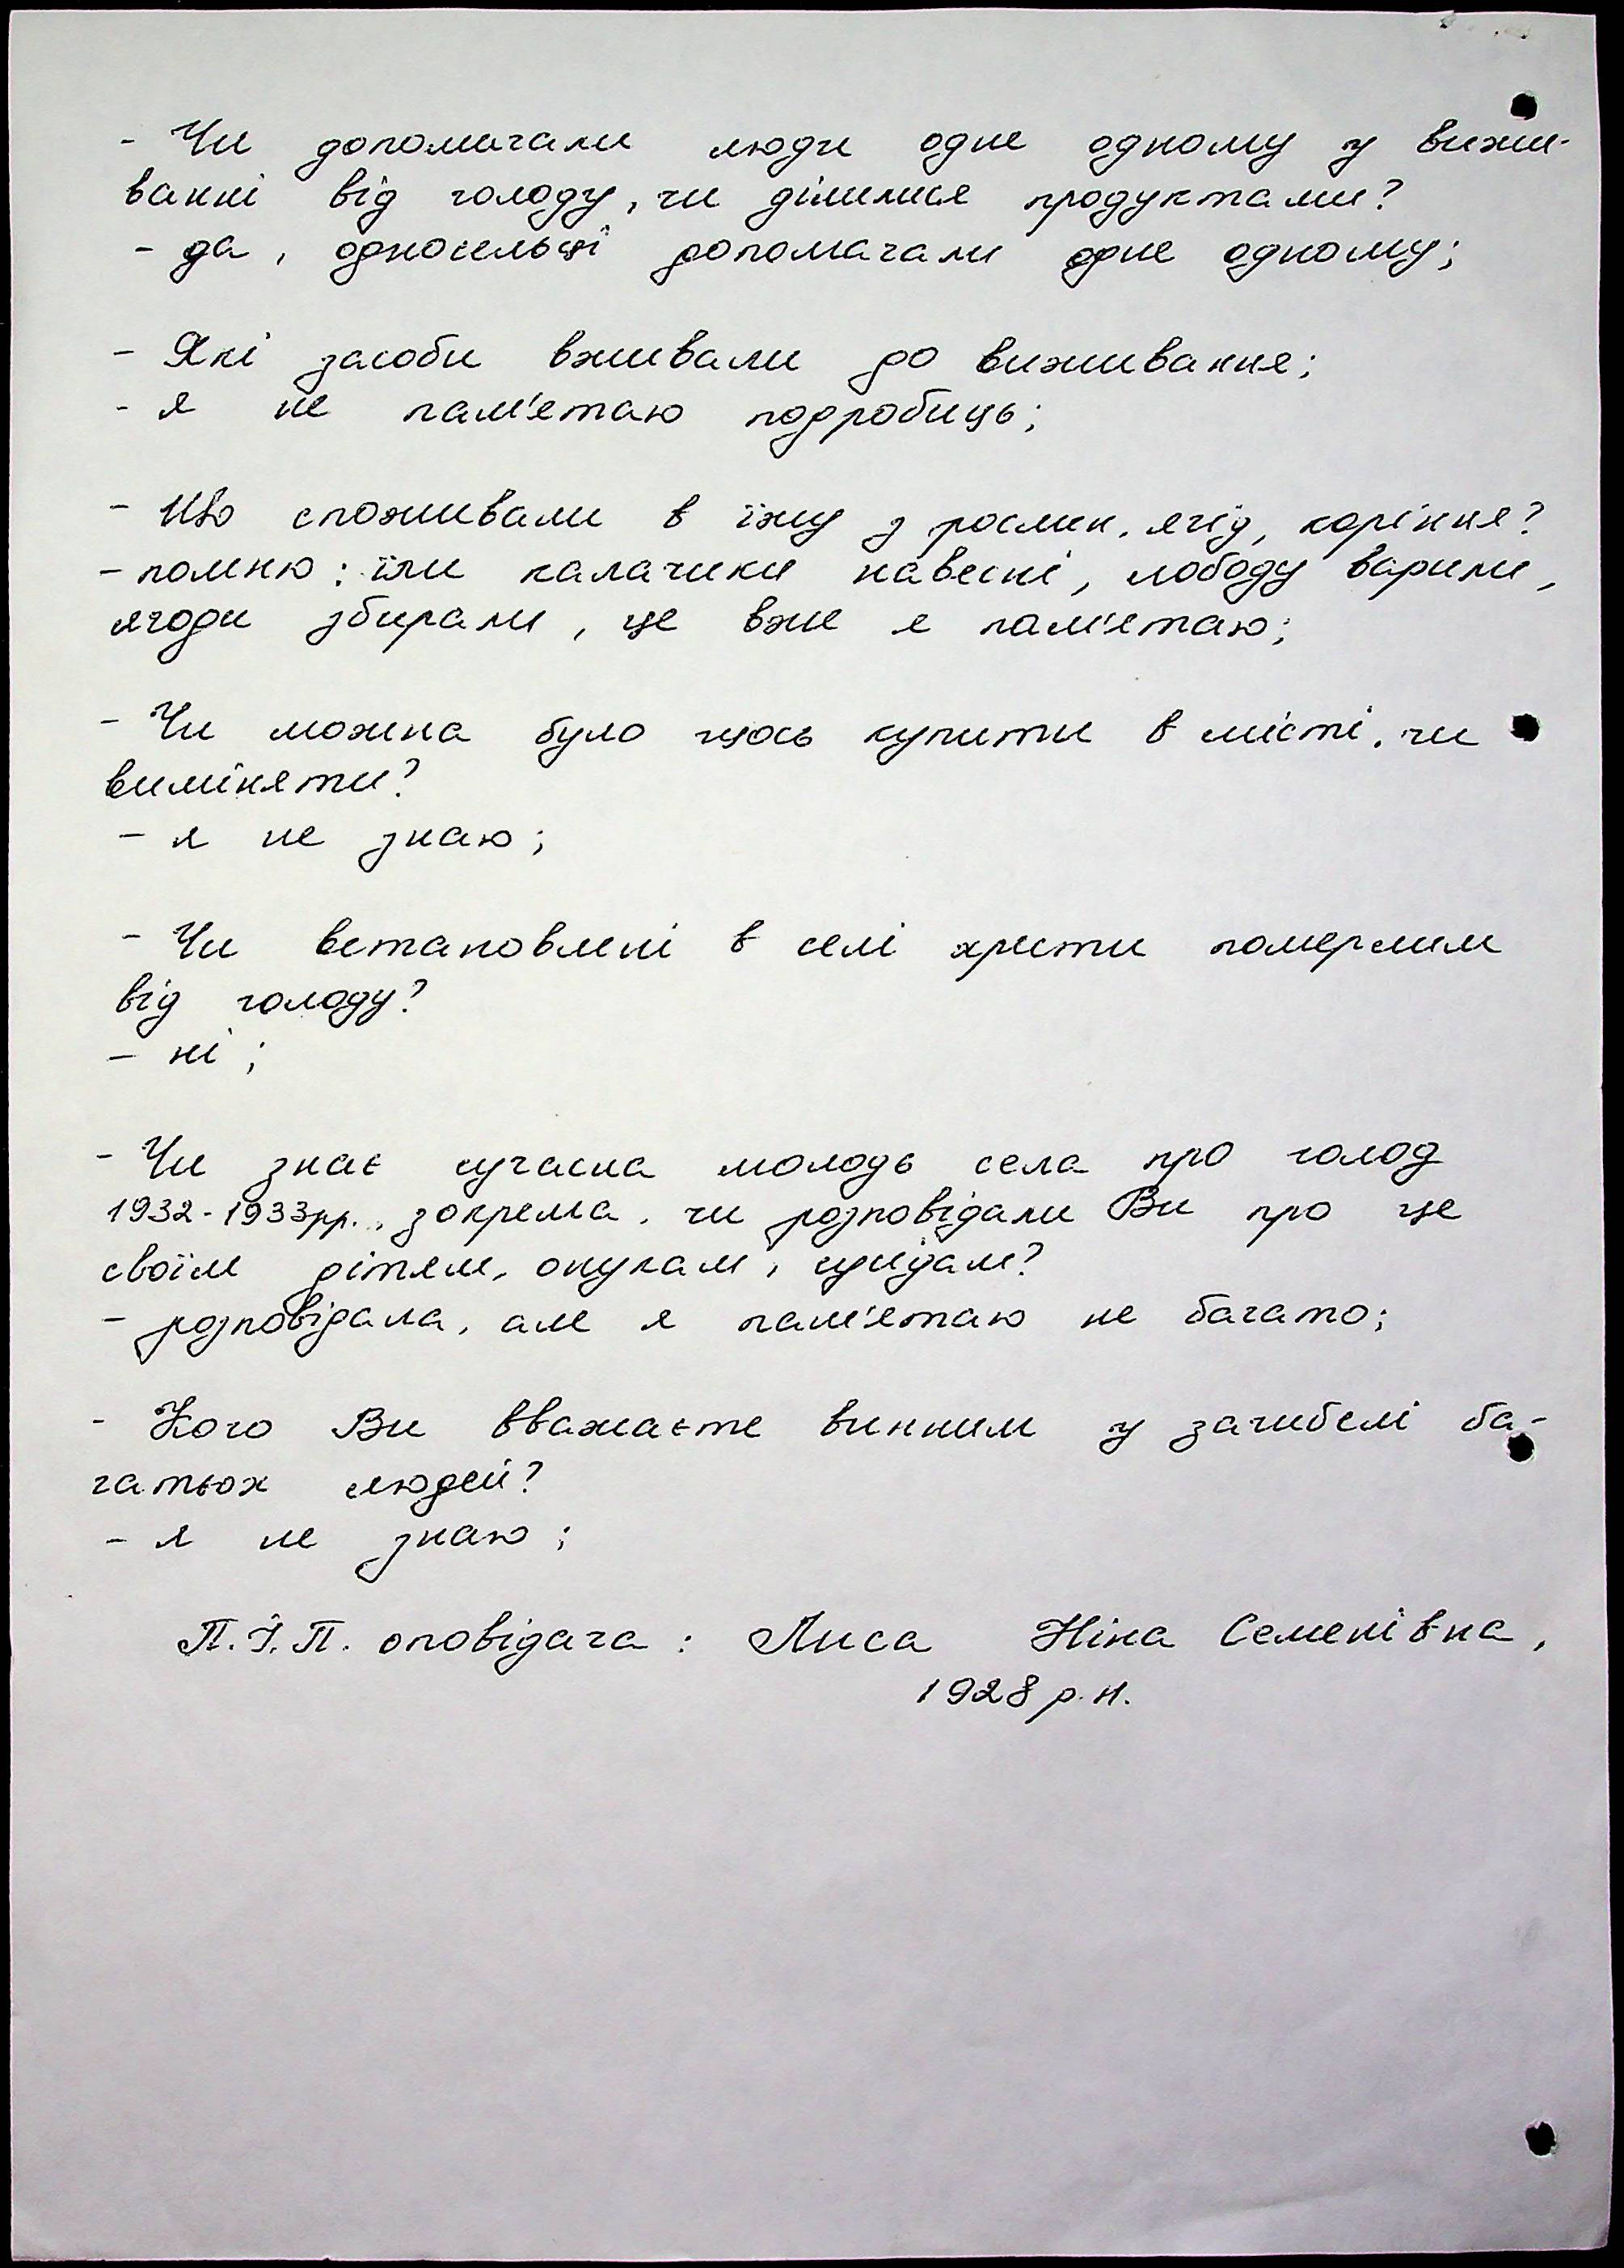 - Чи допомагали люди одне одному у вижи-
ванні від голоду, чи ділилися продуктами?
- да, односельці допомагали одне одному;
- Які засоби вживали до виживання;
- я не пам'ятаю подробиць;
- Що споживали в їжу з рослин, ягід, коріння?
- помню: їли калачики навесні, лободу варили,
ягоди збирали, це вже я пам'ятаю;
- Чи можна було щось купити в місті, чи
виміняти?
- я не знаю;
- Чи встановлені в селі хрести померлим
від голоду?
- ні;
- Чи знає сучасна молодь села про голод
1932-1933рр., зокрема, чи розповідали Ви про це
своїм дітям, онукам, сусідам?
- розповідала, але я пам'ятаю не багато;
- Кого Ви вважаєте винним у загибелі ба-
гатьох людей?
- я не знаю;
П.І.П. оповідача: Лиса Ніна Семенівна,
1928 р.н.